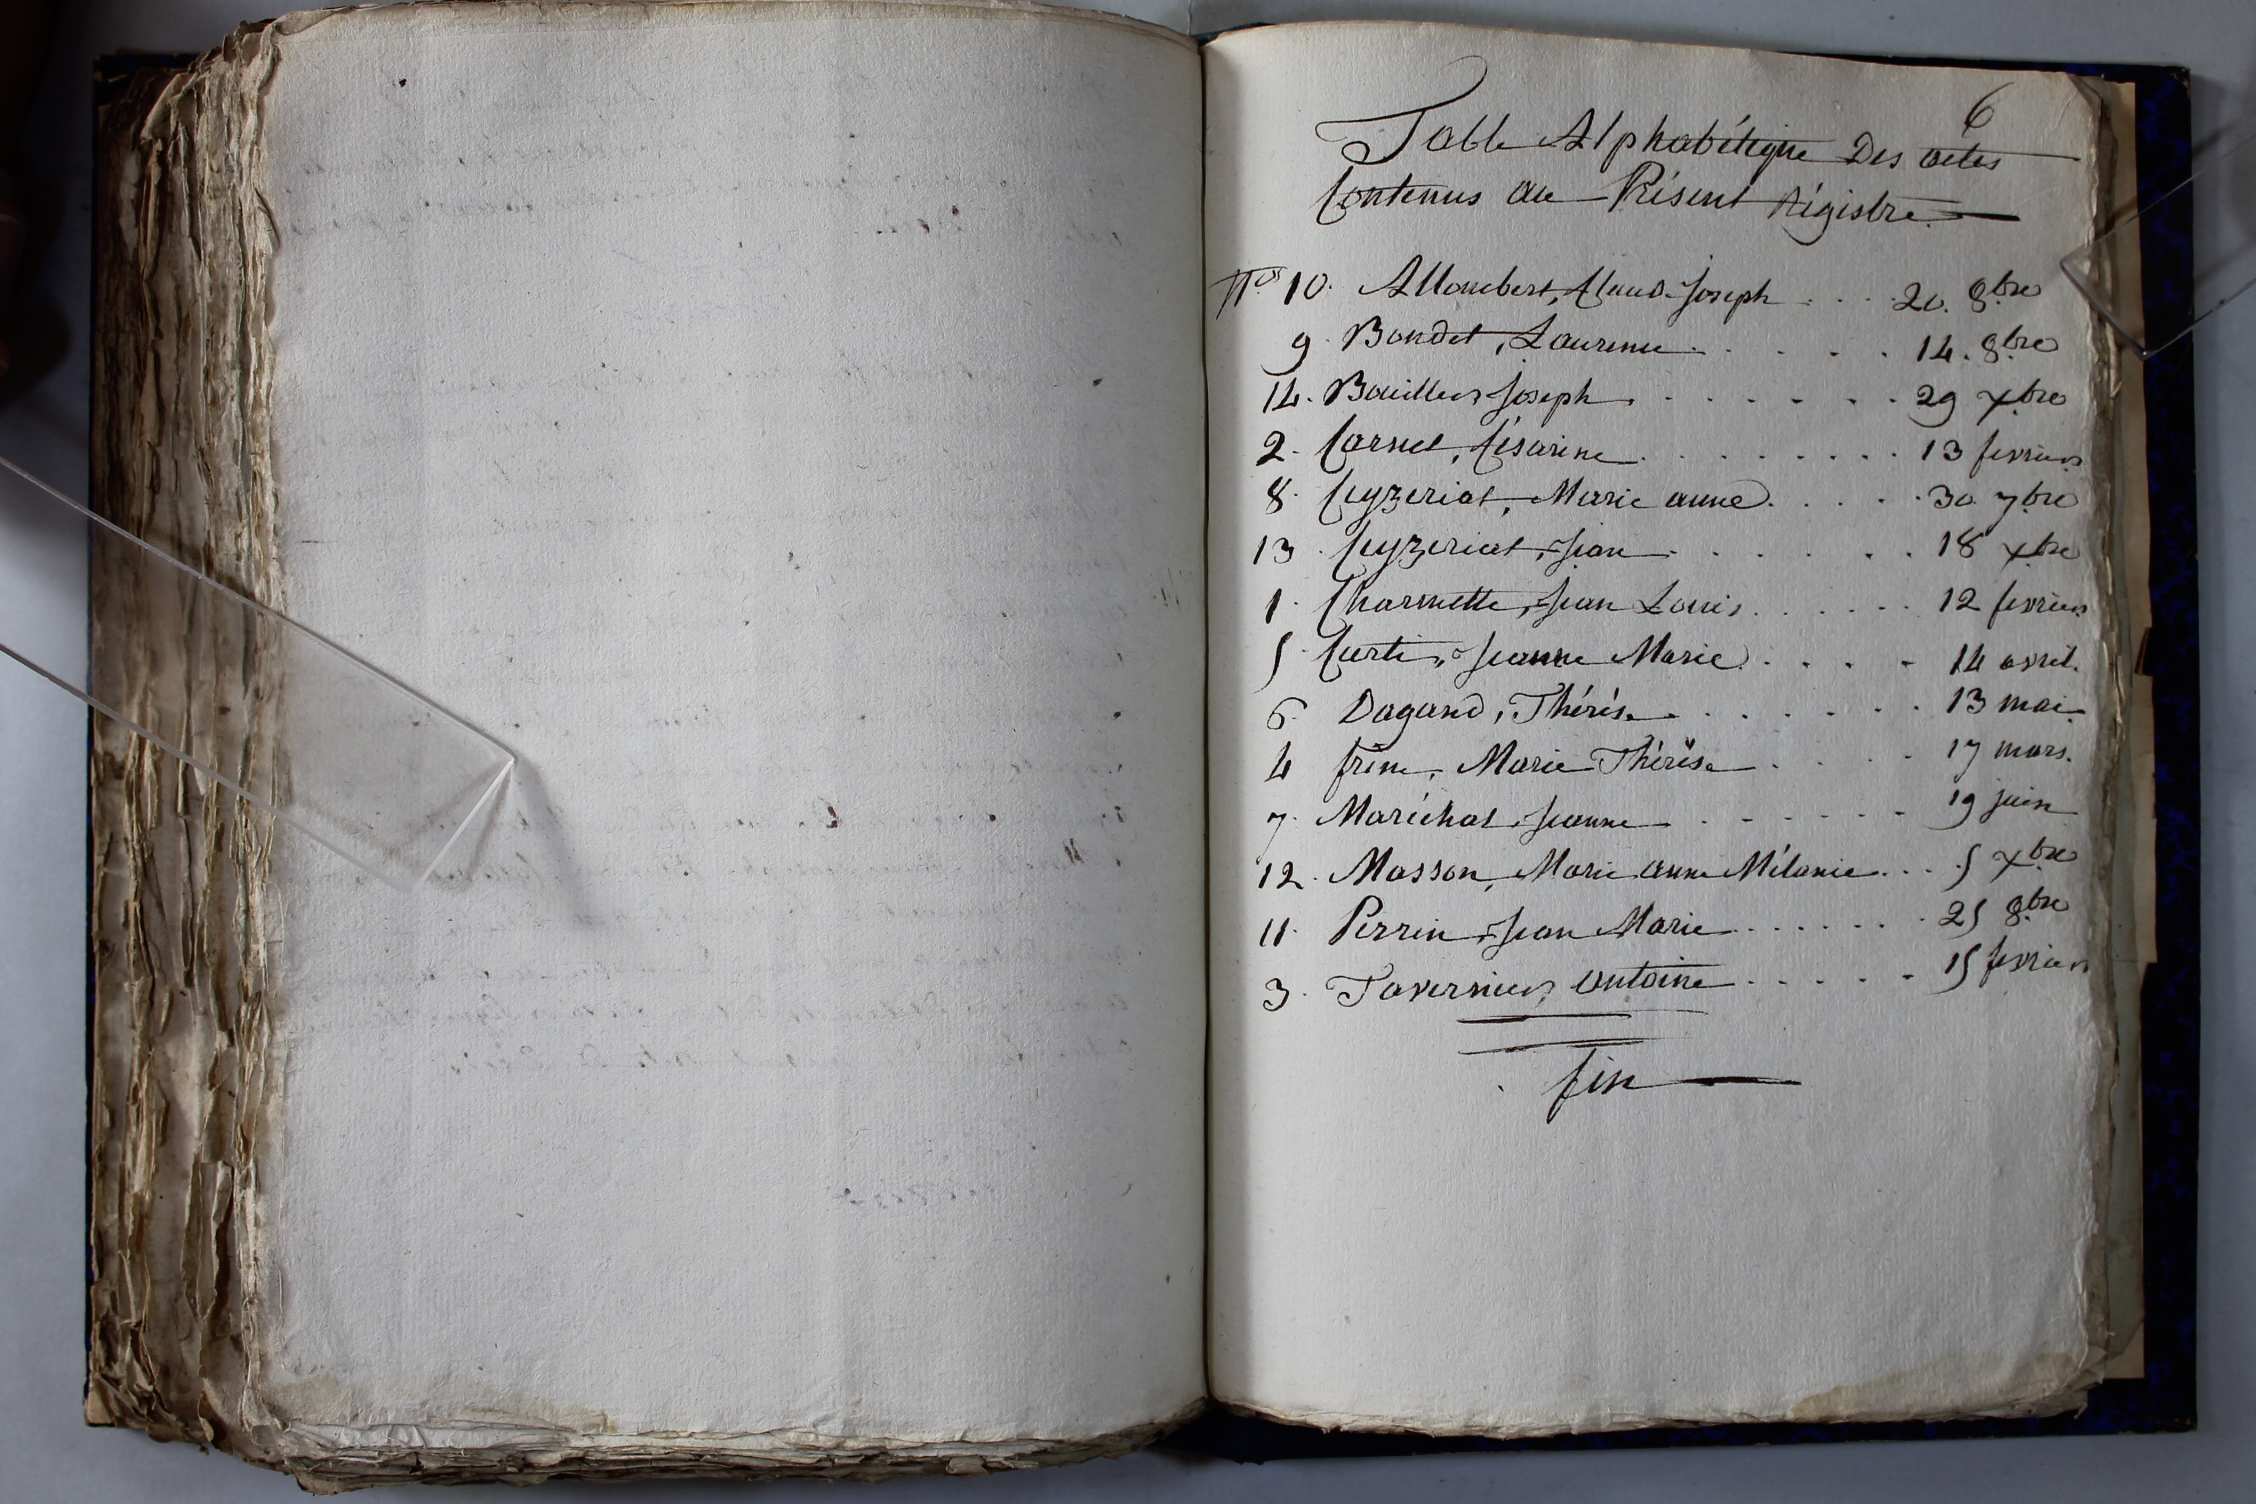 6
Table Alphabétique Des actes
Contenus au Présent Régistre.
Nos 10. Allombert, Claud-Joseph . . . 20. 8bre
9. Bondet, Laurence . . . . . 14. 8bre
14. Bouillers Joseph . . . . . . 29 xbre
2. Carnet, Césarine . . . . . . . . 13 fevrier
8. Ceyzeriat, Marie anne . . . . 30 7bre
13. Ceyzeriat, Jean . . . . . . 18 xbre
1. Charmette, Jean Louis . . . . . . 12 fevrier
5. Curti, Jeanne Marie . . . . 14 avril.
6. Dagand, Thérése . . . . . . 13 mai
4 frêne, Marie Thérèse . . . . 17 mars.
7. Maréchal, Jeanne . . . . . . 19 juin
12. Masson, Marie anne Mélanie . . . 5 xbre
11. Perrin, Jean Marie . . . . . . 25 8bre
3. Tavernier, antoine . . . . . 15 fevrier
fin